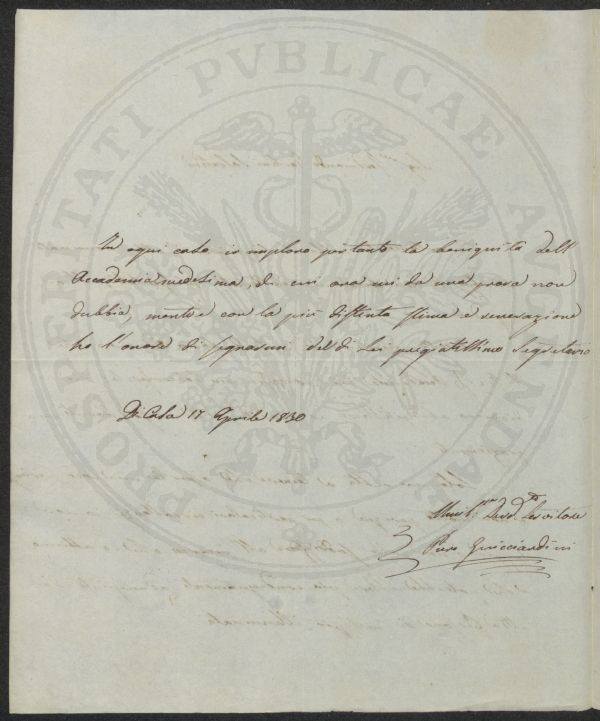 PROSPERITATI PVBLICAE AUGENDAE
In ogni caso io imploro pertanto la benignità dell'
Accademia medesima, di cui ora mi da una prova non
dubbia, mentre con la più distinta stima e venerazione
ho l'onore di segnarmi del di Lei pregiatissimo Segretario
Di Casa 17 Aprile 1830
Servitore
Piero Guicciardini